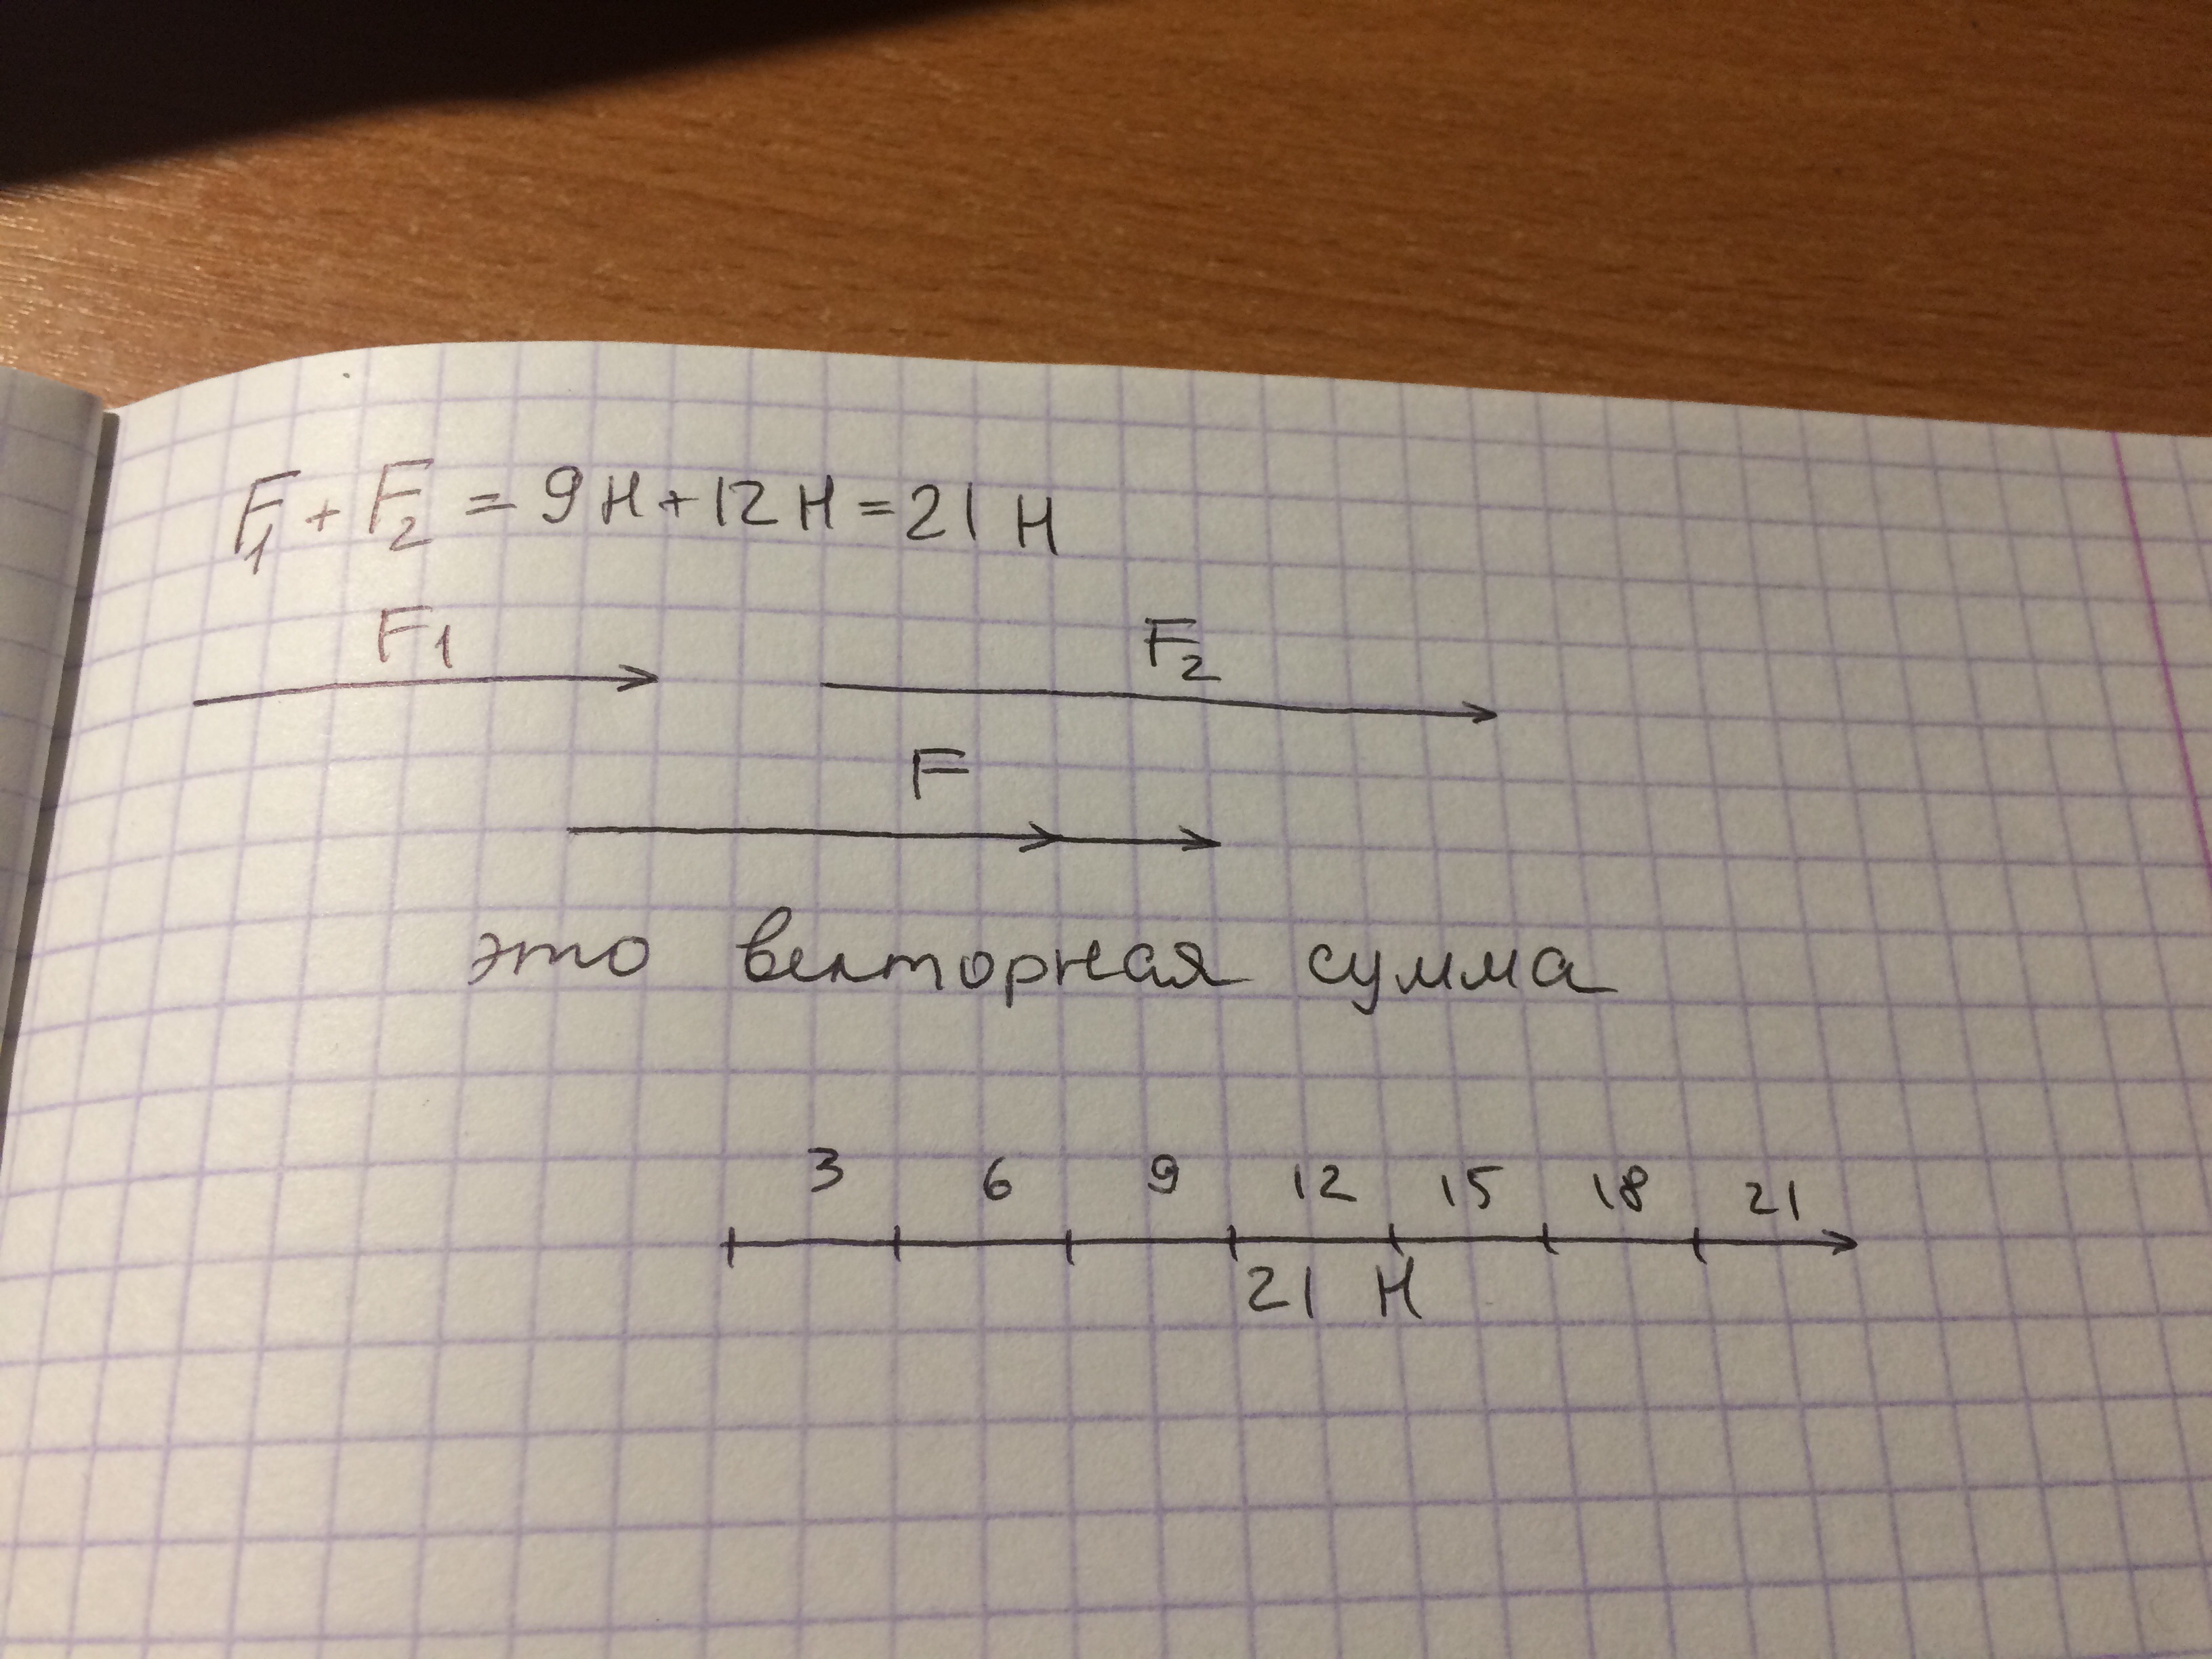 F₁ + F₂ = 9Н + 12Н = 21 Н
F1 F₂
F
это векторная сумма
3 6 9 12 15 18 21
21 Н